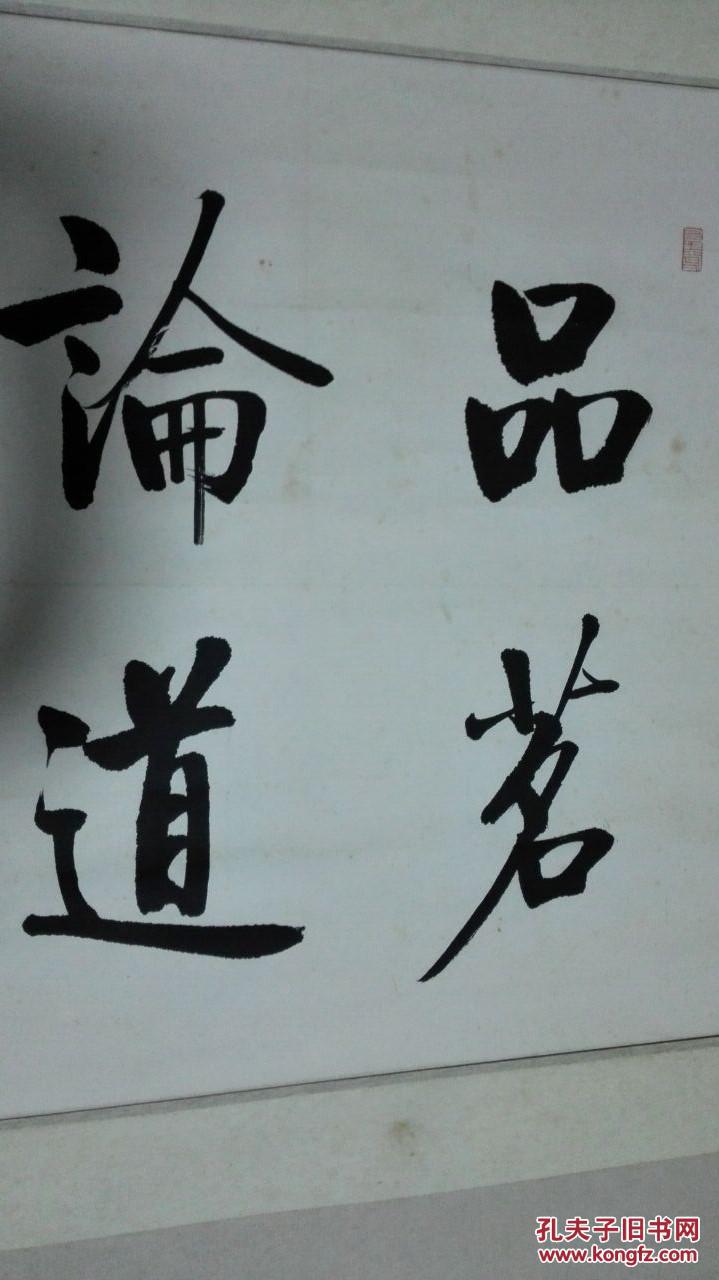 品茗
論道
孔夫子旧书网
www.kongfz.com